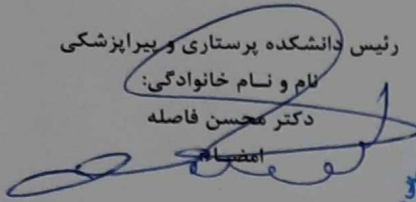 رئیس دانشکده پرستاری و پیراپزشکی
نام و نــام خانوادگی:
دکتر محسن فاصله
امضــاء